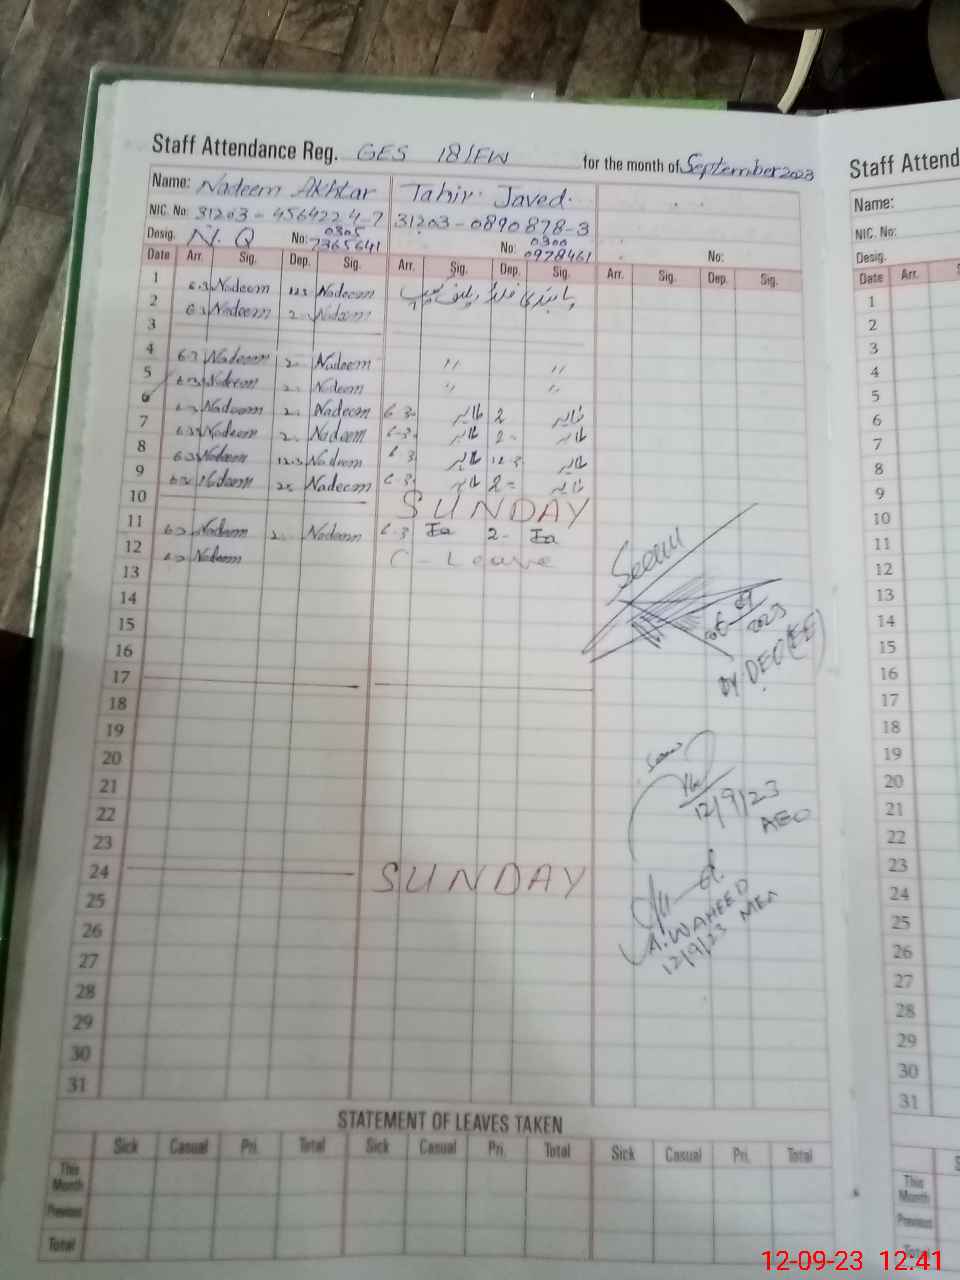 Staff Attendance Reg. GES 18/FW for the month of September 2023
Name: Nadeem Akhtar Tahir Javed.
NIC. No: 31203-4564224-7 31203-0890878-3
Desig. N. Q No: 0305 7365641 No: 0300 0978461 No:
Date Arr. Sig. Dep. Sig. Arr. Sig. Dep. Sig. Arr. Sig. Dep. Sig.
1 6.3 Nadeem 12.3 Nadeem
2 6.3 Nadeem 2 Nadeem
3
4 6.3 Nadeem 2 Nadeem " "
5 6.3 Nadeem 2 Nadeem " "
6 6.3 Nadeem 2 Nadeem 6.3 طاہر 2 طاہر
7 6.3 Nadeem 2 Nadeem 6.3 طاہر 2 طاہر
8 6.3 Nadeem 12.3 Nadeem 6.3 طاہر 12.3 طاہر
9 Nadeem Nadeem 6.3 طاہر 2 طاہر
10 SUNDAY
11 6.3 Nadeem 2 Nadeem 6.3 2
12 6.3 Nadeem C-Leave
13
14
15
16
17
18
19
20
21
22
23
24 SUNDAY
25
26
27
28
29
30
31
Seen
09
2023
Dy DEO(EE)
Seen
12/9/23
AEO
A. WAHEED
12/9/23 MEA
STATEMENT OF LEAVES TAKEN
Sick Casual Pri. Total Sick Casual Pri. Total Sick Casual Pri. Total
This Month
Previous
Total
Staff Attend
Name:
NIC. No:
Desig.
Date Arr.
1
2
3
4
5
6
7
8
9
10
11
12
13
14
15
16
17
18
19
20
21
22
23
24
25
26
27
28
29
30
31
This Month
Previous
Total
12-09-23 12.41